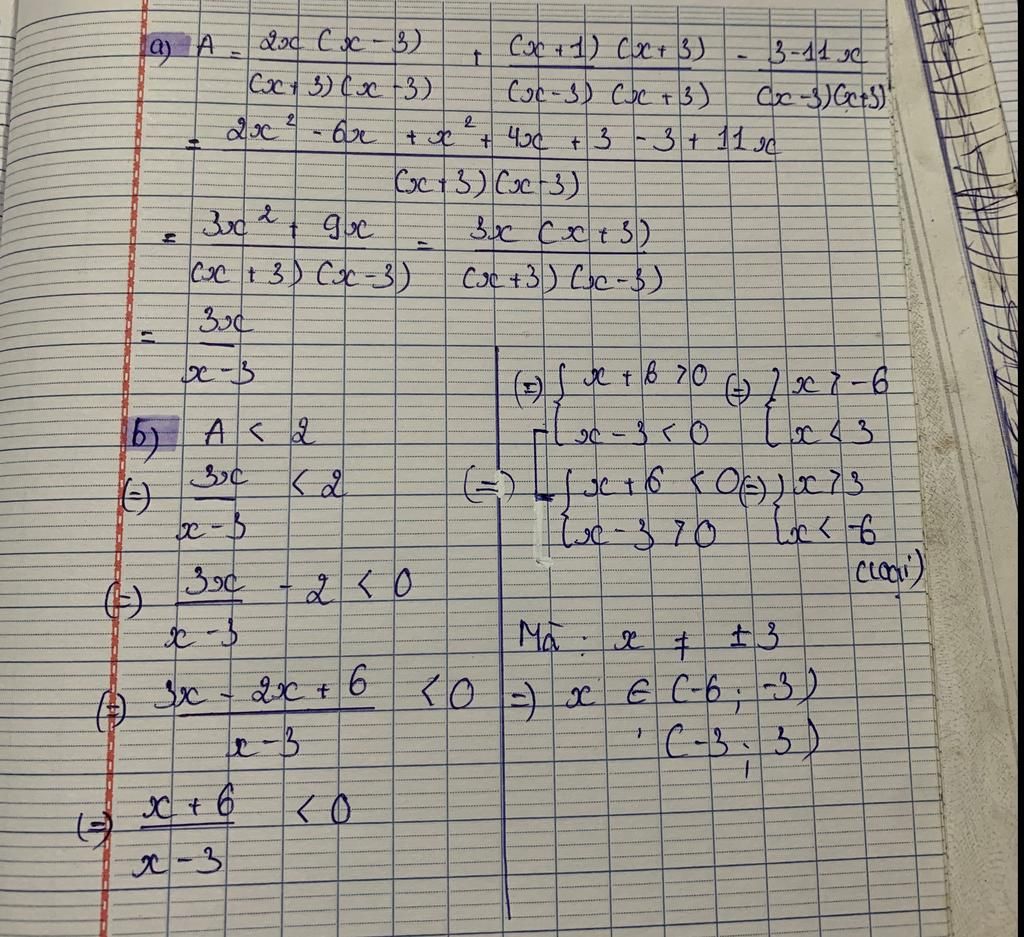 a) A = 2x (x - 3) / (x + 3)(x - 3) + (x + 1)(x + 3) / (x - 3)(x + 3) - 3 - 11x / (x - 3)(x + 3)
= 2x² - 6x + x² + 4x + 3 - 3 + 11x / (x + 3)(x - 3)
= 3x² + 9x / (x + 3)(x - 3) = 3x (x + 3) / (x + 3)(x - 3)
= 3x / x - 3
b) A < 2
(=) 3x / x - 3 < 2
(=) 3x / x - 3 - 2 < 0
(=) 3x - 2x + 6 / x - 3 < 0
(=) x + 6 / x - 3 < 0
(=) { x + 6 > 0 (=) { x > -6
{ x - 3 < 0 { x < 3
(=) { x + 6 < 0 (=) { x > 3
{ x - 3 > 0 { x < -6
(loại)
Mà : x ≠ ± 3
=) x ∈ (-6 ; -3)
; (-3 ; 3)